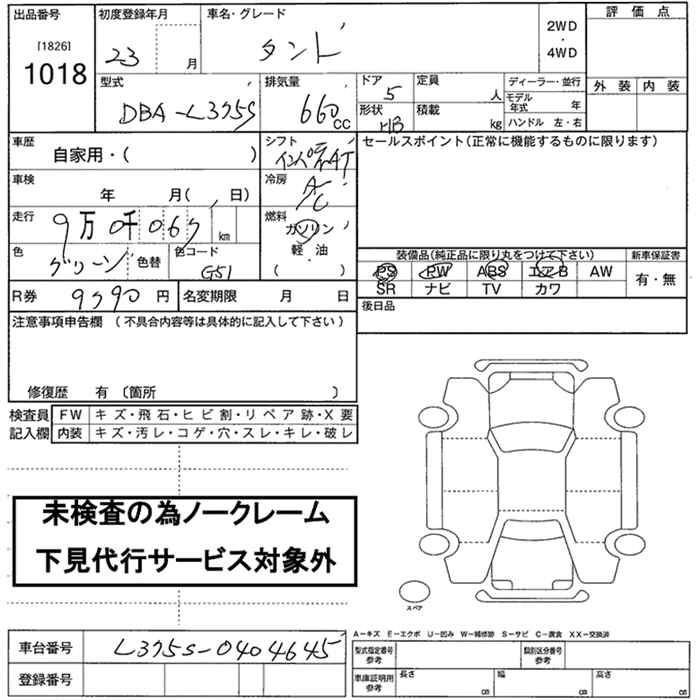 出品番号 初度登録年月 車名・グレード 2WD・4WD 評価点
[1826]
1018 23 月 タント
型式 排気量 ドア 定員 ディーラー・並行 外装 内装
DBA-L375S 660cc 5 人 モデル年式 年
形状 積載 ハンドル 左・右
HB kg
車歴 自家用・( ) シフト インパネAT セールスポイント(正常に機能するものに限ります)
車検 年 月( 、日) 冷房 A/C
走行 9万0千065 km 燃料 ガソリン
軽・油
( )
色 グリーン 色替 色コード G51
装備品(純正品に限り丸をつけて下さい) 新車保証書
PS PW ABS エアB AW 有・無
SR ナビ TV カワ
R券 9990円 名変期限 月 日 後日品
注意事項申告欄 (不具合内容等は具体的に記入して下さい)
修復歴 有 〔箇所 〕
検査員記入欄 FW キズ・飛石・ヒビ割・リペア跡・X要
内装 キズ・汚レ・コゲ・穴・スレ・キレ・破レ
未検査の為ノークレーム
下見代行サービス対象外
スペア
A-キズ E-エクボ U-凹み W-補修跡 S-サビ C-腐食 XX-交換済
車台番号 L375S-0404645 型式指定番号 参考 類別区分番号 参考
登録番号 車庫証明用 参考 長さ cm 幅 cm 高さ cm